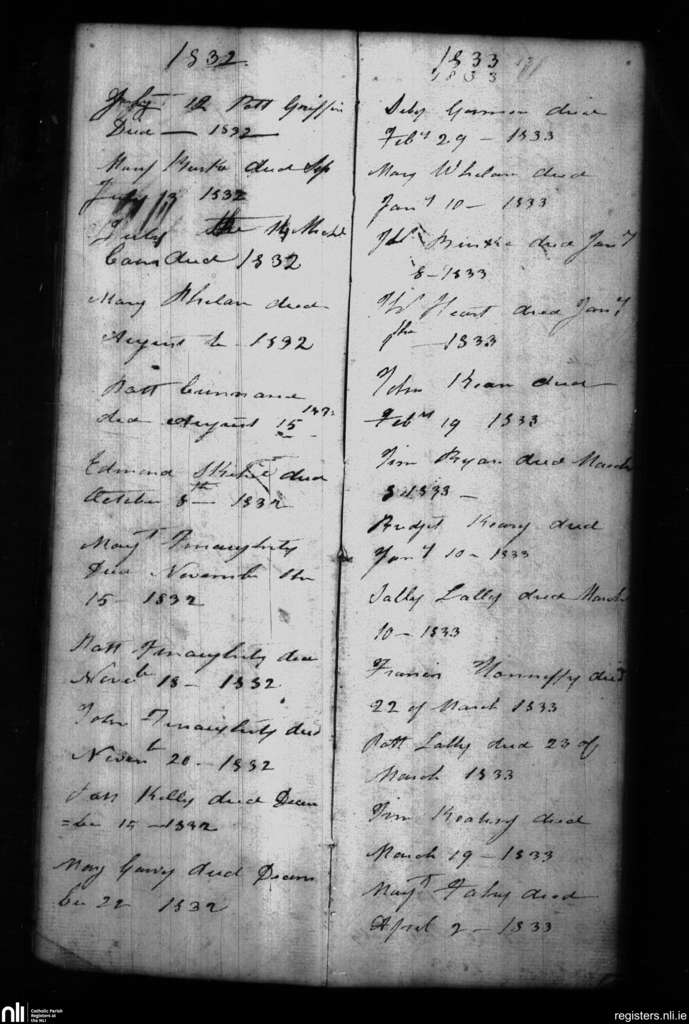 1832
July 12 Patt Griffin
Died — 1832
Mary Burke died
July 19 1832
July the
died 1832
Mary Whelan died
August 1832
Patt Cunnane
died August 15
Edmond died
October 8th — 1832
Margt Finaughty
Died November the
15 - 1832
Patt Finaughty died
Novbr 18 - 1832
John Finaughty died
Novembr 20 - 1832
Patt Kelly died Decem
=ber 15 - 1832
Mary Garvy died Decem
ber 22 1832
1833
1833
Deby Gannon died
Feby 29 - 1833
Mary Whelan died
Jany 10 - 1833
died Jany
8 - 1833
Heart died Jany
1833
John Kean died
Feby 19 1833
Tim Ryan died March
8 1833 -
Bridget Keary died
Jany 10 - 1833
Sally Lally died March
10 - 1833
Francis died
22 of March 1833
Patt Lally died 23 of
March 1833
Tim Keating died
March 19 - 1833
Margt Fahy died
April 2 - 1833
nli
Catholic Parish
Registers at
the NLI
registers.nli.ie